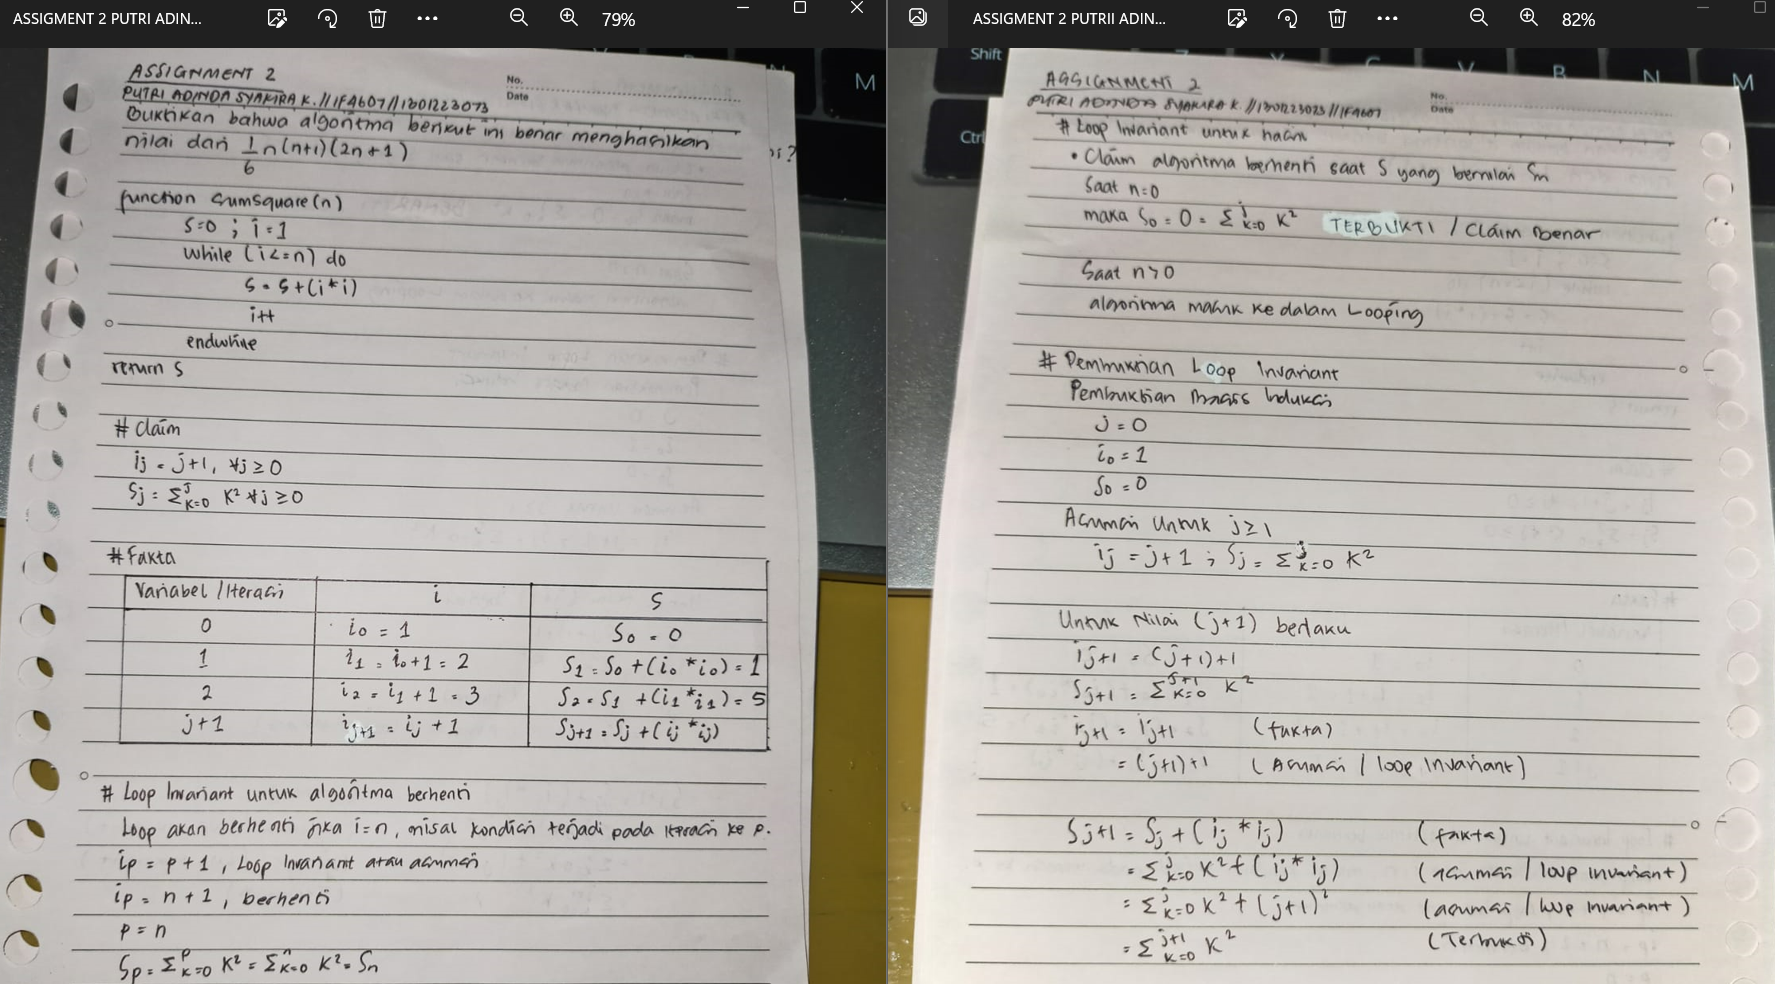 ASSIGMENT 2 PUTRI ADIN...
79%
ASSIGNMENT 2
PUTRI ADINDA SYAKIRA K. // IFA607 // 1301223073
No.
Date
Buktikan bahwa algoritma berikut ini benar menghasilkan
nilai dari 1/6 n(n+1)(2n+1)
function sumSquare(n)
S=0 ; i=1
while (i<=n) do
S = S+(i*i)
i++
endwhile
return S
# Claim
ij = j+1, ∀j ≥ 0
Sj = Σ^j_{k=0} K² ∀j ≥ 0
# Fakta
Variabel / Iterasi | i | S
0 | i₀ = 1 | S₀ = 0
1 | i₁ = i₀+1 = 2 | S₁ = S₀ + (i₀ * i₀) = 1
2 | i₂ = i₁ + 1 = 3 | S₂ = S₁ + (i₁ * i₁) = 5
j+1 | i_{j+1} = ij + 1 | S_{j+1} = Sj + (ij * ij)
# Loop Invariant untuk algoritma berhenti
Loop akan berhenti jika i=n, misal kondisi terjadi pada iterasi ke p.
ip = p+1, Loop Invariant atau asumsi
ip = n+1, berhenti
p = n
Sp = Σ^p_{k=0} K² = Σ^n_{k=0} K² = Sn
ASSIGMENT 2 PUTRII ADIN...
82%
Shift
Ctrl
V
B
N
M
ASSIGNMENT 2
PUTRI ADINDA SYAKIRA K. // // IFA607
No.
Date
# Loop Invariant untuk
• Claim algoritma berhenti saat S yang bernilai Sn
Saat n=0
maka S₀ = 0 = Σ^j_{k=0} K² TERBUKTI / Claim Benar
Saat n>0
algoritma masuk kedalam Looping
# Pembuktian Loop Invariant
Pembuktian Basis Induksi
j = 0
i₀ = 1
S₀ = 0
Asumsi untuk j ≥ 1
ij = j+1 ; Sj = Σ^j_{k=0} K²
Untuk Nilai (j+1) berlaku
i_{j+1} = (j+1)+1
S_{j+1} = Σ^{j+1}_{k=0} K²
i_{j+1} = ij+1 (fakta)
= (j+1)+1 (Asumsi / loop Invariant)
S_{j+1} = Sj + (ij * ij) (fakta)
= Σ^j_{k=0} K² + (ij * ij) (asumsi / loop invariant)
= Σ^j_{k=0} K² + (j+1)² (asumsi / loop invariant)
= Σ^{j+1}_{k=0} K² (Terbukti)